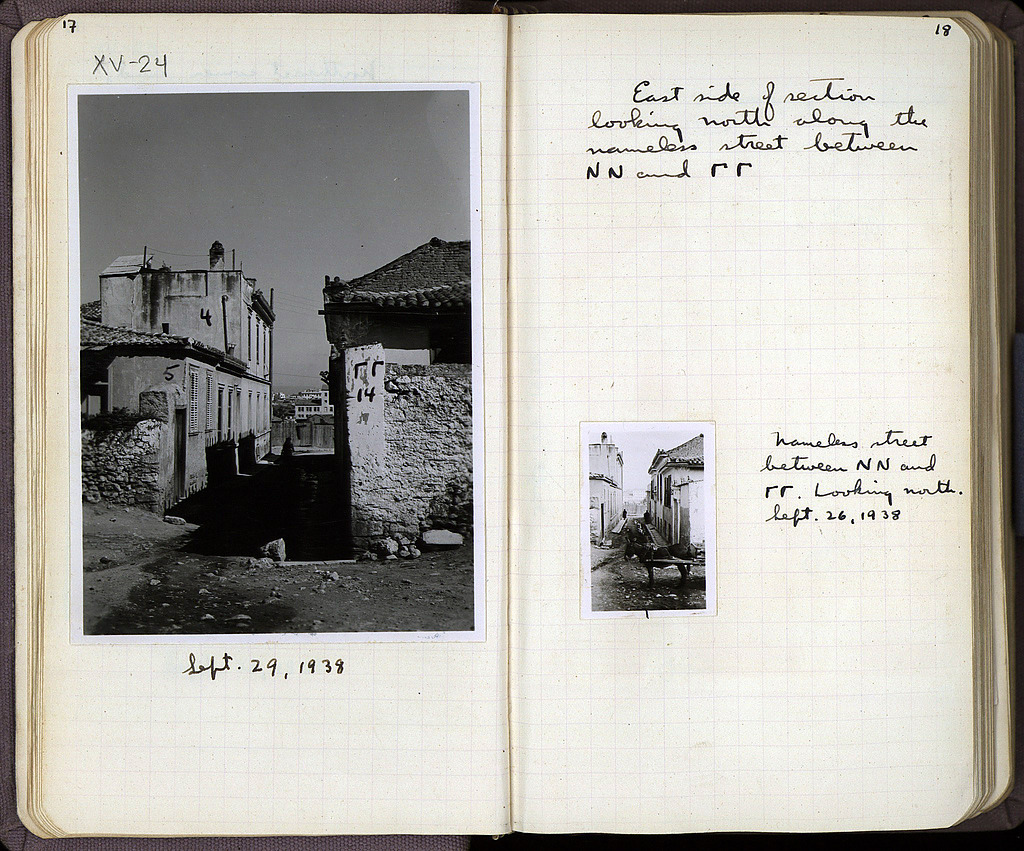 17
XV-24
4
5
ΓΓ
14
Sept. 29, 1938
18
East side of section
looking north along the
nameless street between
NN and ΓΓ
Nameless street
between NN and
ΓΓ. Looking north.
Sept. 26, 1938